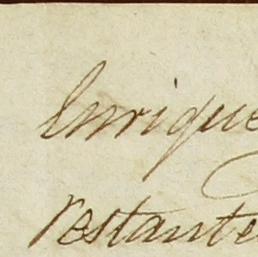 Enrique
restante